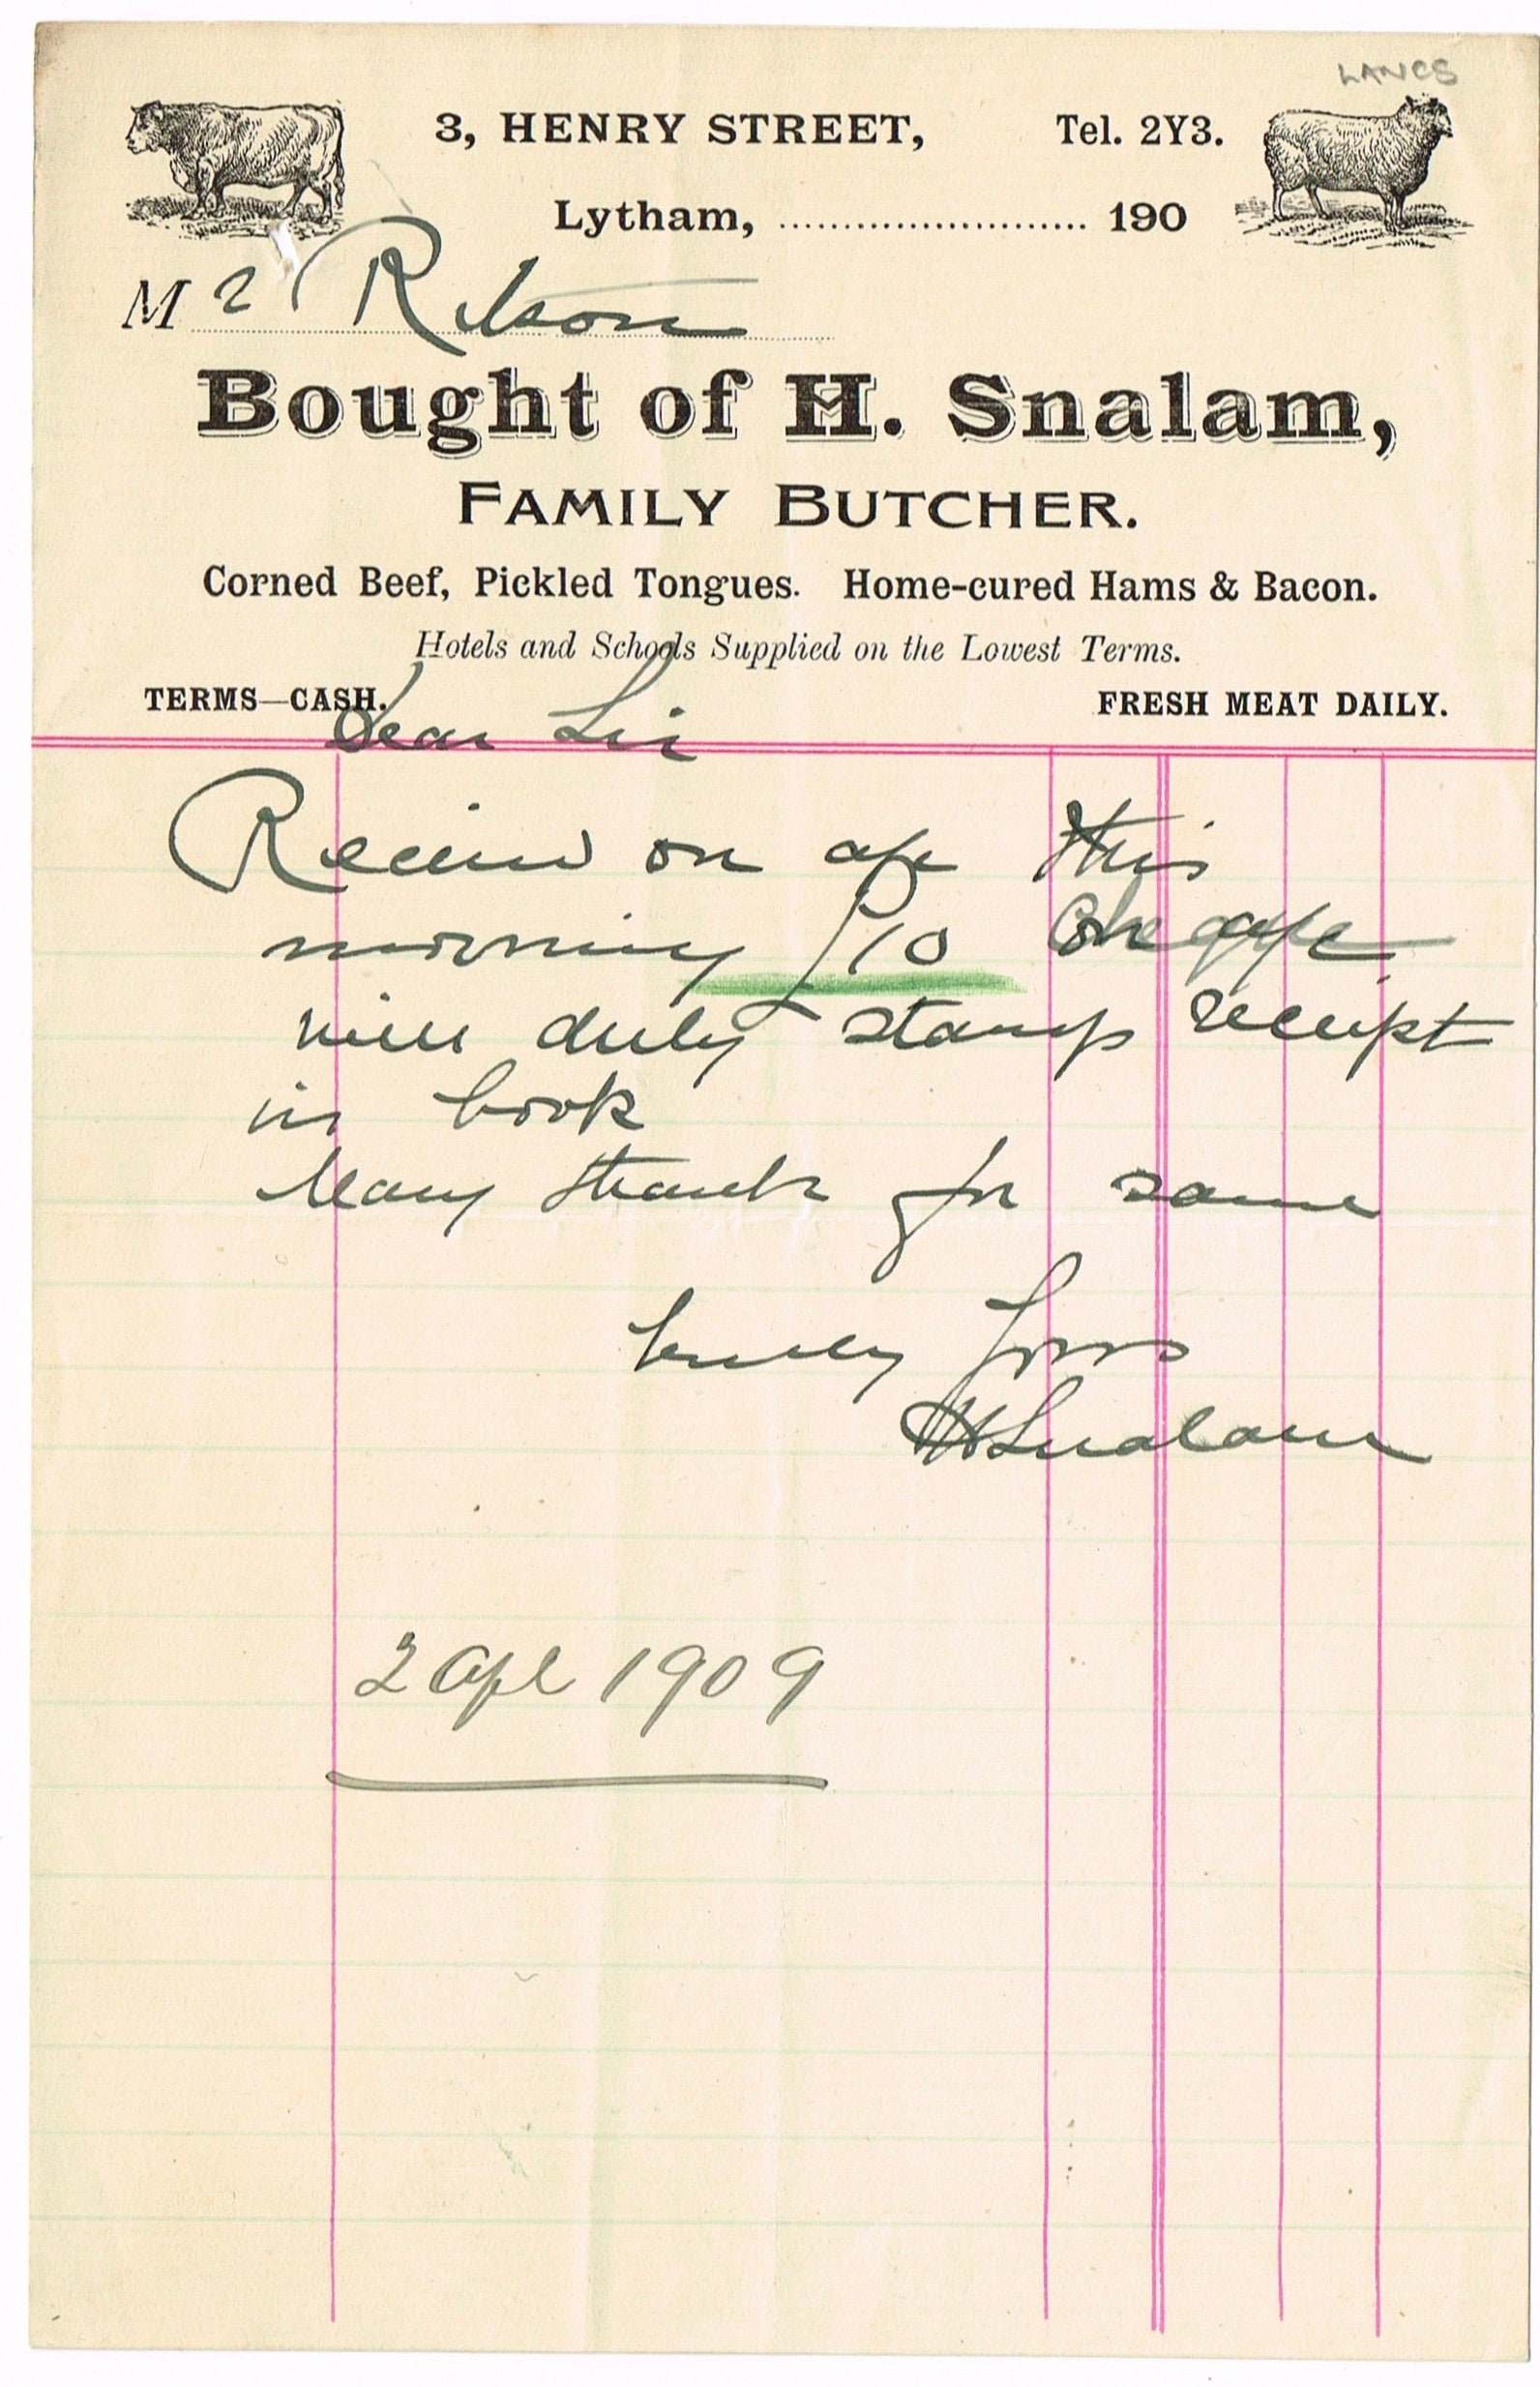 LANCS
3, HENRY STREET, Tel. 2Y3.
Lytham, ........................ 190
Mr Ritson
Bought of H. Snalam,
FAMILY BUTCHER.
Corned Beef, Pickled Tongues. Home-cured Hams & Bacon.
Hotels and Schools Supplied on the Lowest Terms.
TERMS—CASH. FRESH MEAT DAILY.
Dear Sir
on this
morning £10
will duly stamp receipt
in book
Many thanks for same
truly yours
H Snalam
2 Apl 1909